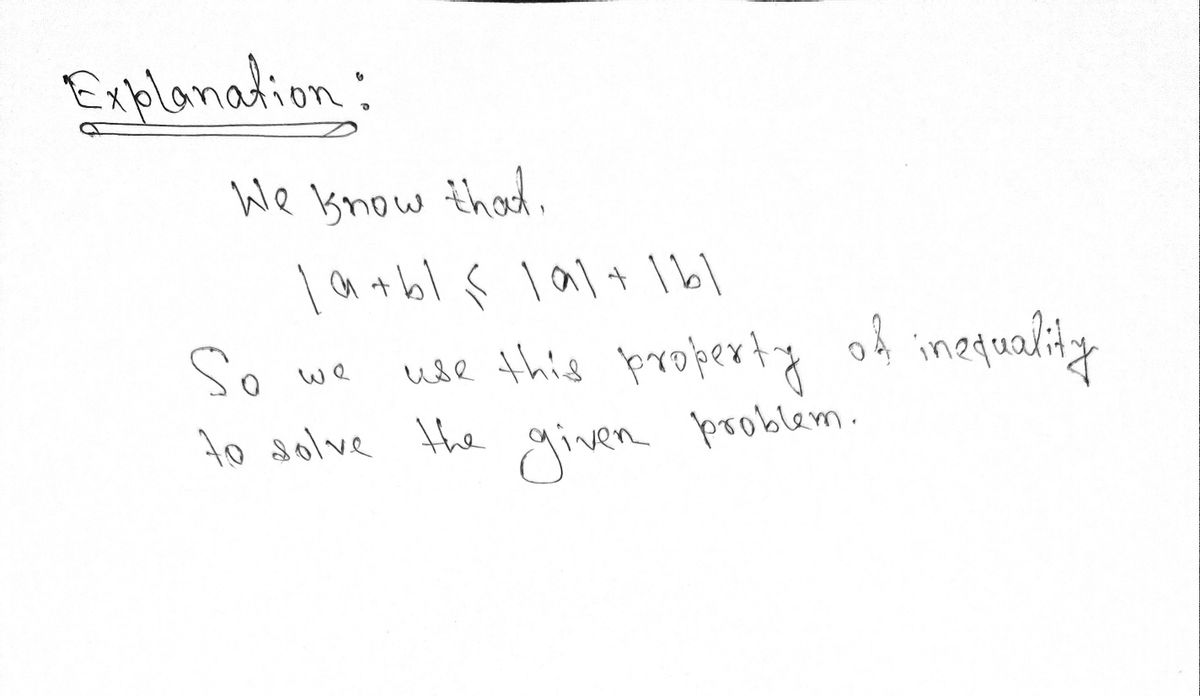 Explanation:
We know that,
|a+b| ≤ |a| + |b|
So we use this property of inequality
to solve the given problem.